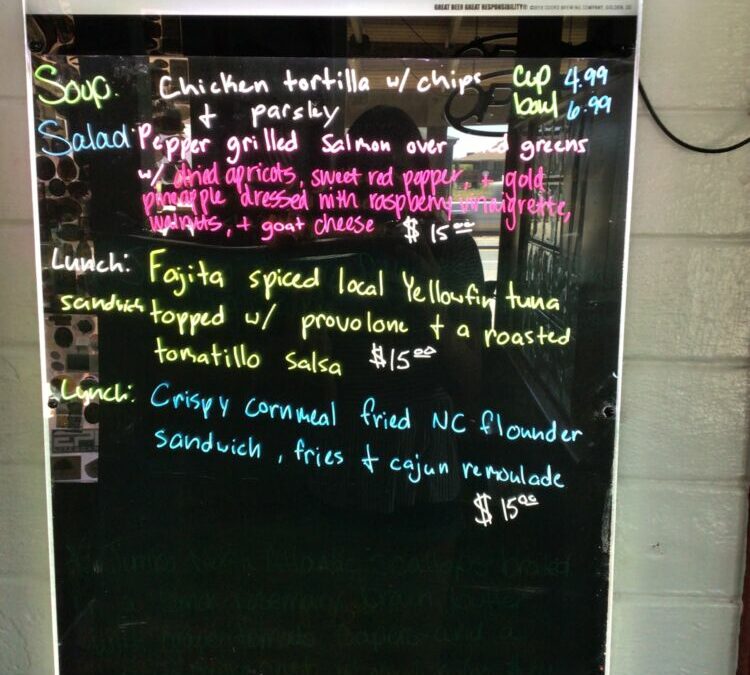 GREAT BEER GREAT RESPONSIBILITY®
Soup: Chicken tortilla w/ chips cup 4.99
+ parsley bowl 6.99
Salad: Pepper grilled Salmon over greens
w/ dried apricots, sweet red pepper, + gold
pineapple dressed with raspberry vinaigrette,
walnuts, + goat cheese $15.00
Lunch: Fajita spiced local Yellowfin tuna
sandwich topped w/ provolone + a roasted
tomatillo salsa $15.00
Lunch: Crispy cornmeal fried NC flounder
sandwich, fries + cajun remoulade
$15.00